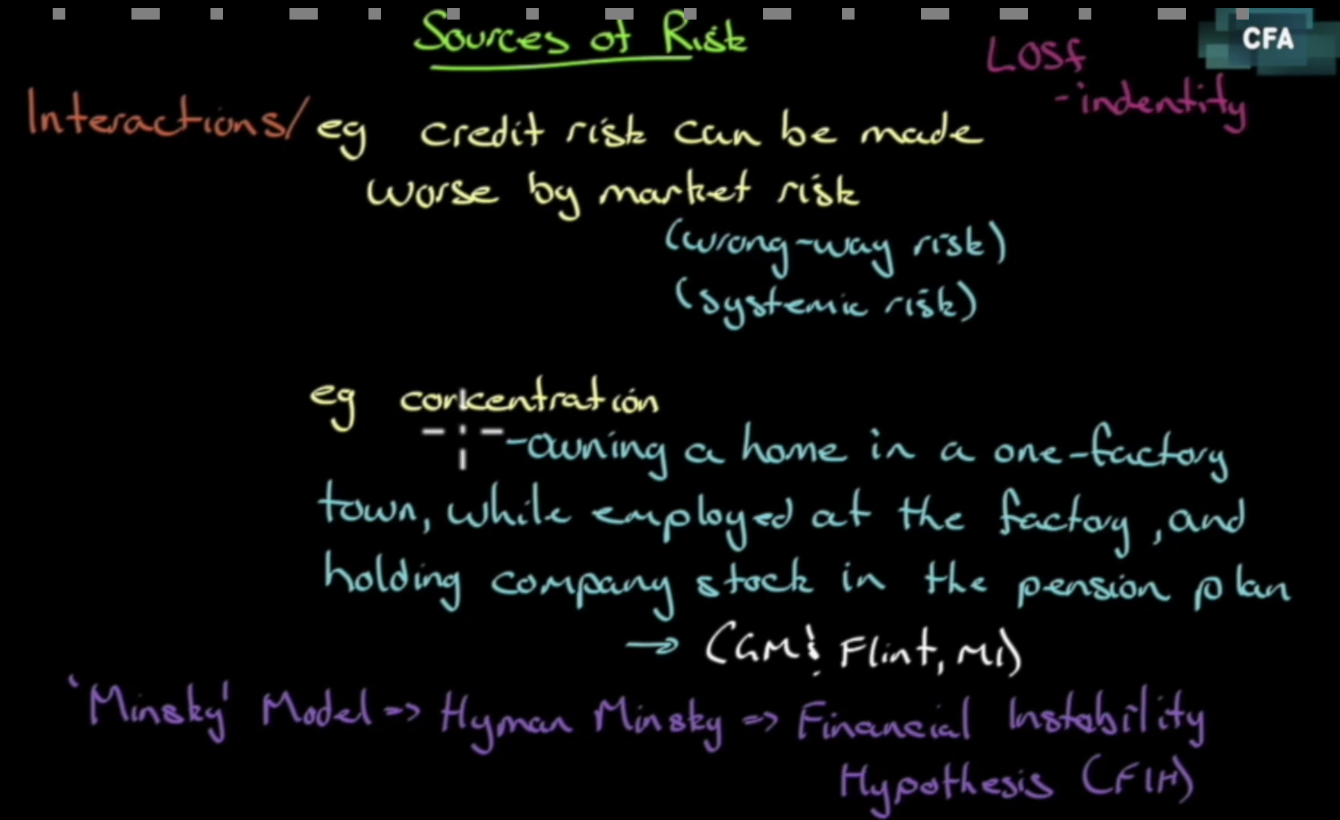 Sources of Risk
CFA
LOSf
-indentity
Interactions/ eg credit risk can be made
worse by market risk
(wrong-way risk)
(systemic risk)
eg concentration
-owning a home in a one-factory
town, while employed at the factory, and
holding company stock in the pension plan
→ (GM! Flint, MI)
'Minsky' Model => Hyman Minsky => Financial Instability
Hypothesis (FIH)